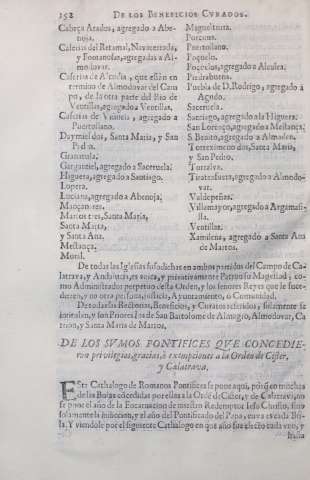 152 DE LOS BENEFICIOS CVRADOS.
Cabeça Arados, agregado a Abenoja.
Caserias del Retamal, Navacerrada, y Fontanosas, agregadas a Almodovar.
Caserias de Alcudia, que estàn en termino de Almodovar del Campo, de la otra parte del Rio de Ventillas, agregado a Ventillas.
agregado a Puertollano.
Daymiel dos, Santa Maria, y San Pedro.
Granatula.
Gargantiel, agregado a Saceruela.
Higuera, agregado a Santiago.
Lopera.
Luciana, agregado a Abenoja.
Mançanares.
Martos tres, Santa Maria,
Santa Marta,
y Santa Ana.
Mestança.
Moral.
Magueltorra.
Porcuna.
Puertollano.
Poçuelo.
Poçuelos, agregado a Alcolea.
Piedrabuena.
Puebla de D. Rodrigo, agregado à Agudo.
Saceruela.
Santiago, agregado a la Higuera.
San Lorenço, agregado a Mestança.
S. Benito, agregado a Almaden.
Torreximeno dos, Santa Maria, y San Pedro.
Torralva.
Tirateafuera, agregado a Almodovar.
Valdepeñas.
Villamayor, agregado a Argamasilla.
Ventillas.
Xamilena, agregado a Santa Ana de Martos.
De todas las Iglesias susodichas en ambos partidos del Campo de Calatrava, y Andaluzia, es unica, y privativamente Patron su Magestad, como Administrador perpetuo desta Orden, y los señores Reyes que le sucedieren, y no otra persona, iusticia, Ayuntamiento, o Comunidad.
De todas las Rectorias, Beneficios, y Curatos referidos, solamente se intitulan, y son Priores los de San Bartolome de Almagro, Almodovar, y Santa Maria de Martos.
DE LOS SVMOS PONTIFICES QVE CONCEDIEron privilegios, gracias, ò exempciones a la Orden de Cister, y Calatrava.
ESte Cathalogo de Romanos Pontifices se pone aqui, porq̃ en muchas de las Bulas cõcedidas por ellos a la Ordẽ de Cister, y de Calatrava, no se pone el año de la Encarnacion de nuestro Redemptor Iesu Christo, sino solamente la indiccion, y el año del Pontificado del Papa, cuya era la Bula. Y viendose por el siguiente Cathalogo en que año fue electo cada uno, y